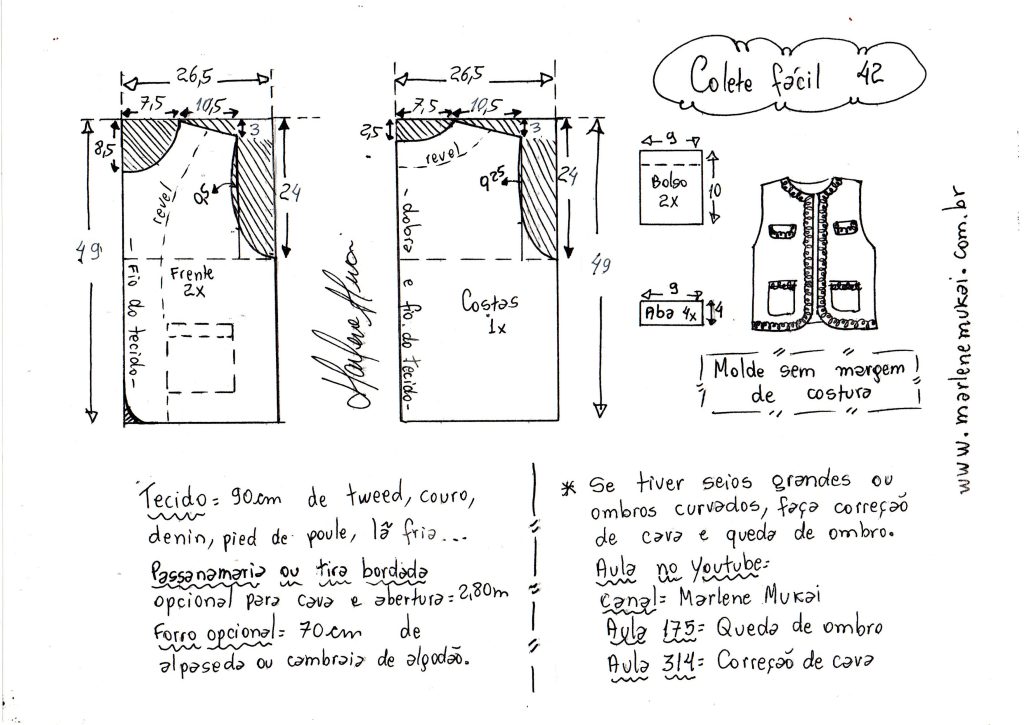 Colete fácil 42
26,5
7,5
10,5
3
8,5
0,5
24
49
revel
Frente
2x
- Fio do tecido -
26,5
7,5
10,5
3
2,5
0,25
24
49
revel
- dobra e fio do tecido -
Costas
1x
9
Bolso
2x
10
9
Aba 4x
4
Molde sem margem
de costura
www.marlenemukai.com.br
Tecido = 90cm de tweed, couro,
denin, pied de poule, lã fria...
Passanamaria ou tira bordada
opcional para cava e abertura = 2,80m
Forro opcional = 70cm de
alpaseda ou cambraia de algodão.
* Se tiver seios grandes ou
ombros curvados, faça correção
de cava e queda de ombro.
Aula no Youtube =
Canal = Marlene Mukai
Aula 175 = Queda de ombro
Aula 314 = Correção de cava